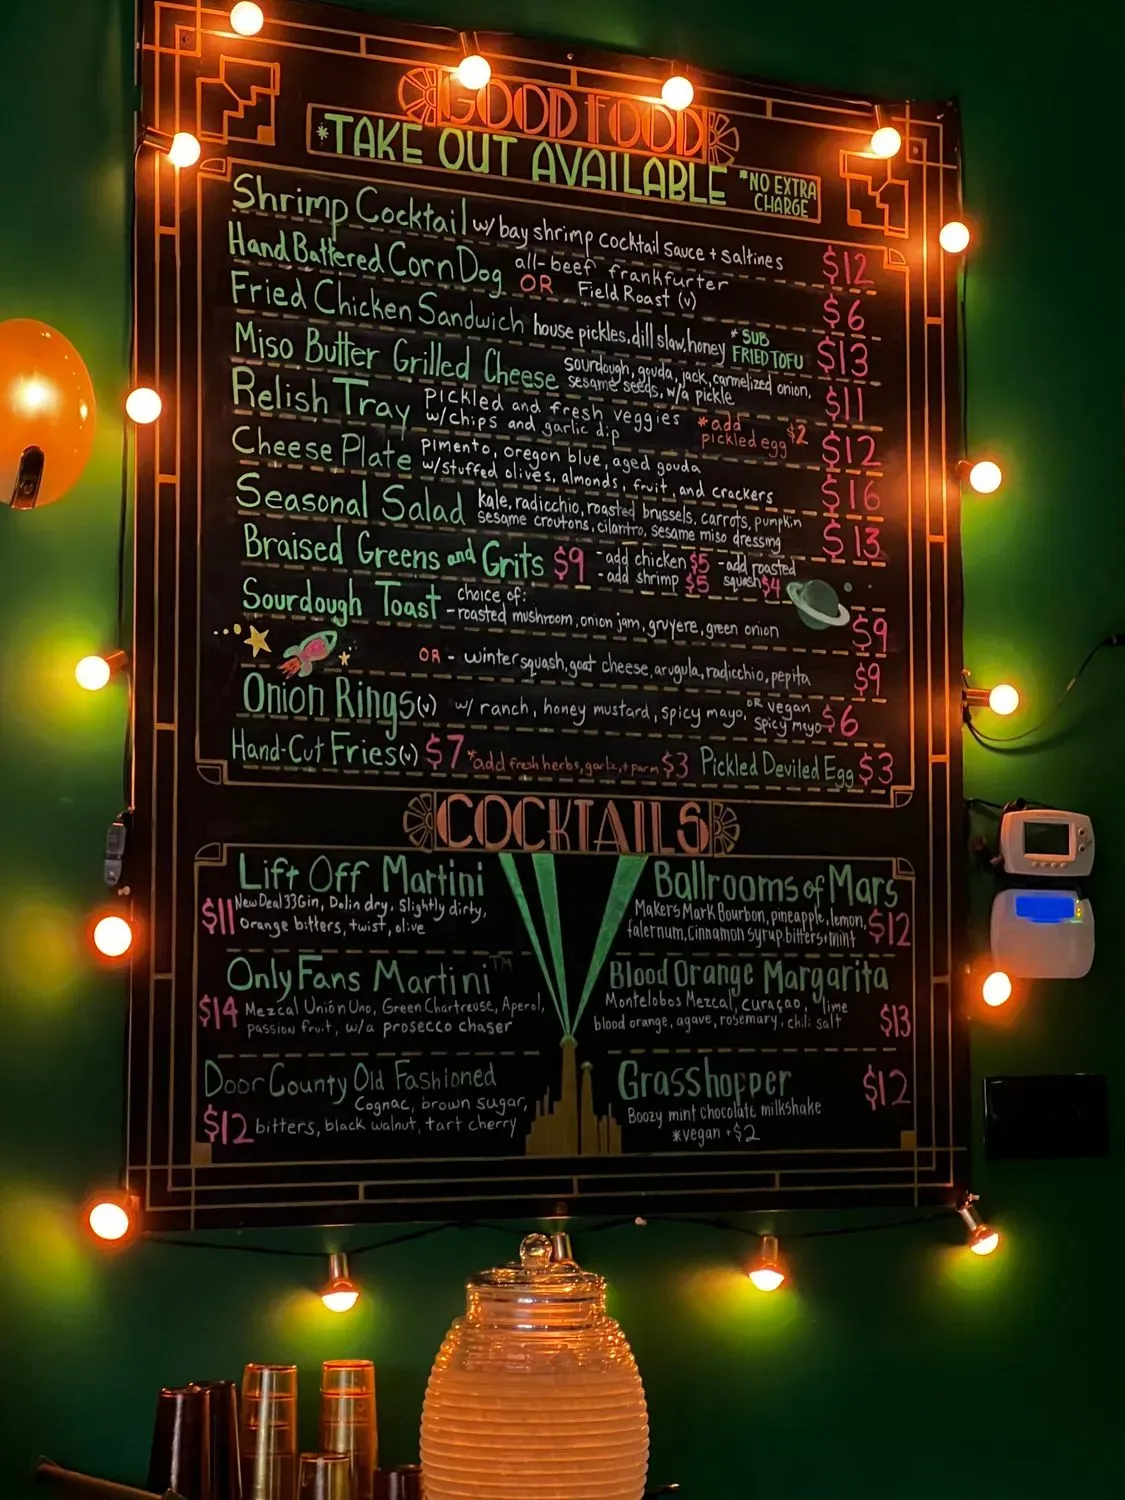 GOOD FOOD
*TAKE OUT AVAILABLE *NO EXTRA CHARGE
Shrimp Cocktail w/ bay shrimp cocktail sauce + saltines $12
Hand Battered Corn Dog all-beef frankfurter
OR Field Roast (v) $6
Fried Chicken Sandwich house pickles, dill slaw, honey *SUB FRIED TOFU $13
Miso Butter Grilled Cheese sourdough, gouda, jack, carmelized onion,
sesame seeds, w/a pickle $11
Relish Tray pickled and fresh veggies
w/chips and garlic dip *add pickled egg $2 $12
Cheese Plate pimento, oregon blue, aged gouda
w/stuffed olives, almonds, fruit, and crackers $16
Seasonal Salad kale, radicchio, roasted brussels, carrots, pumpkin
sesame croutons, cilantro, sesame miso dressing $13
Braised Greens and Grits $9 -add chicken $5 -add roasted
-add shrimp $5 squash $4
Sourdough Toast choice of:
-roasted mushroom, onion jam, gruyere, green onion $9
OR - winter squash, goat cheese, arugula, radicchio, pepita $9
Onion Rings (v) w/ ranch, honey mustard, spicy mayo, OR vegan spicy myo $6
Hand-Cut Fries (v) $7 *add fresh herbs, garlic, + parm $3 Pickled Deviled Egg $3
COCKTAILS
Lift Off Martini
$11 New Deal 33 Gin, Dolin dry, Slightly dirty,
Orange bitters, twist, olive
OnlyFans Martini™
$14 Mezcal Unión Uno, Green Chartreuse, Aperol,
passion fruit, w/a prosecco chaser
Door County Old Fashioned
Cognac, brown sugar,
$12 bitters, black walnut, tart cherry
Ballrooms of Mars
Makers Mark Bourbon, pineapple, lemon, $12
falernum, cinnamon syrup bitters + mint
Blood Orange Margarita
Montelobos Mezcal, curaçao, lime
blood orange, agave, rosemary, chili salt $13
Grasshopper $12
Boozy mint chocolate milkshake
*vegan +$2